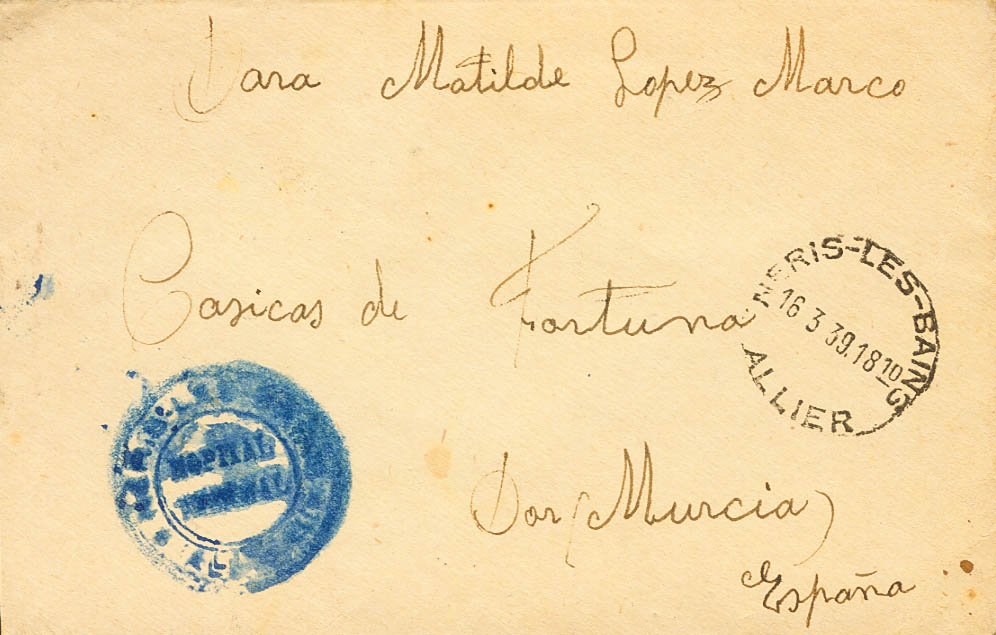 Para Matilde Lopez Marco
Casicas de Fortuna
NERIS-LES-BAINS
16 3 39.18 10
ALLIER
HOPITAL
Por (Murcia)
España